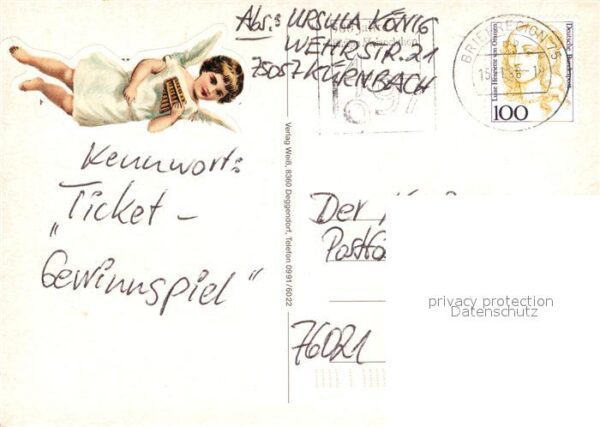 Abs.: URSULA KÖNIG
WEHRSTR. 21
75057 KÜRNBACH
BRIEFREGION 75
Deutsche Bundespost
Luise Henriette von Oranien
100
Kennwort:
"Ticket-
Gewinnspiel"
Verlag Weiß, 8360 Deggendorf, Telefon 0991/6022
Der
Postfa
76021
privacy protection
Datenschutz